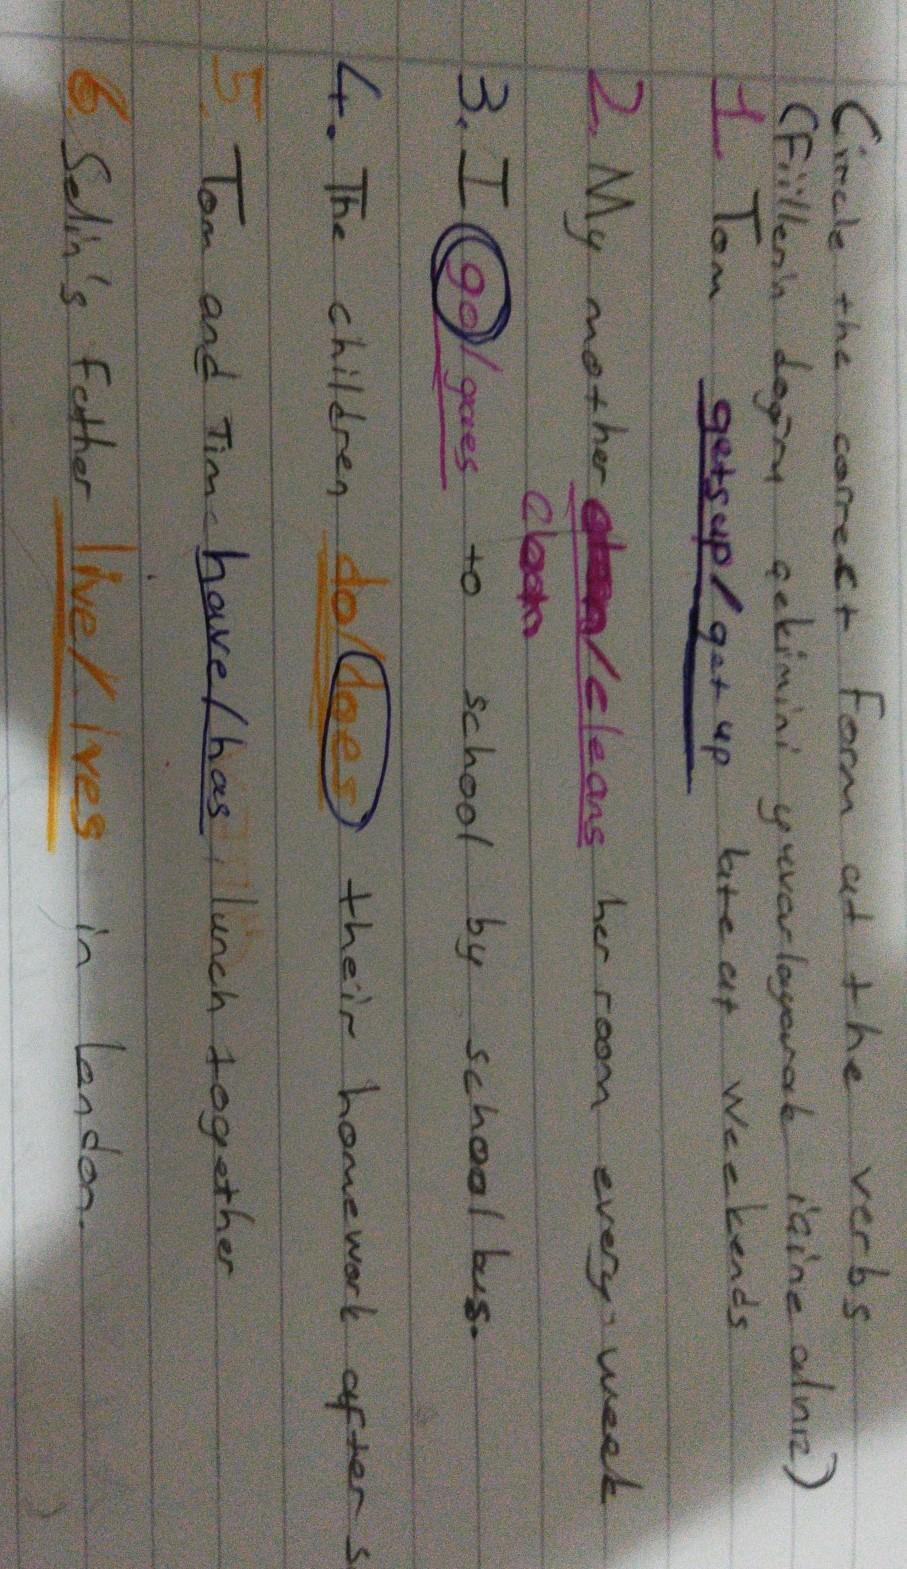 Circle the correct form at the verbs
(Fiillerin doğru çekimini yuvarlayarak içine alınız)
1. Tom gets up/get up late at weekends
2. My mother clean/cleans her room every week
clean
3. I go/goes to school by school bus.
4. The children do/does their homework after s
5. Tom and Tim have/has lunch together
6. Selin's father live/lives in london.